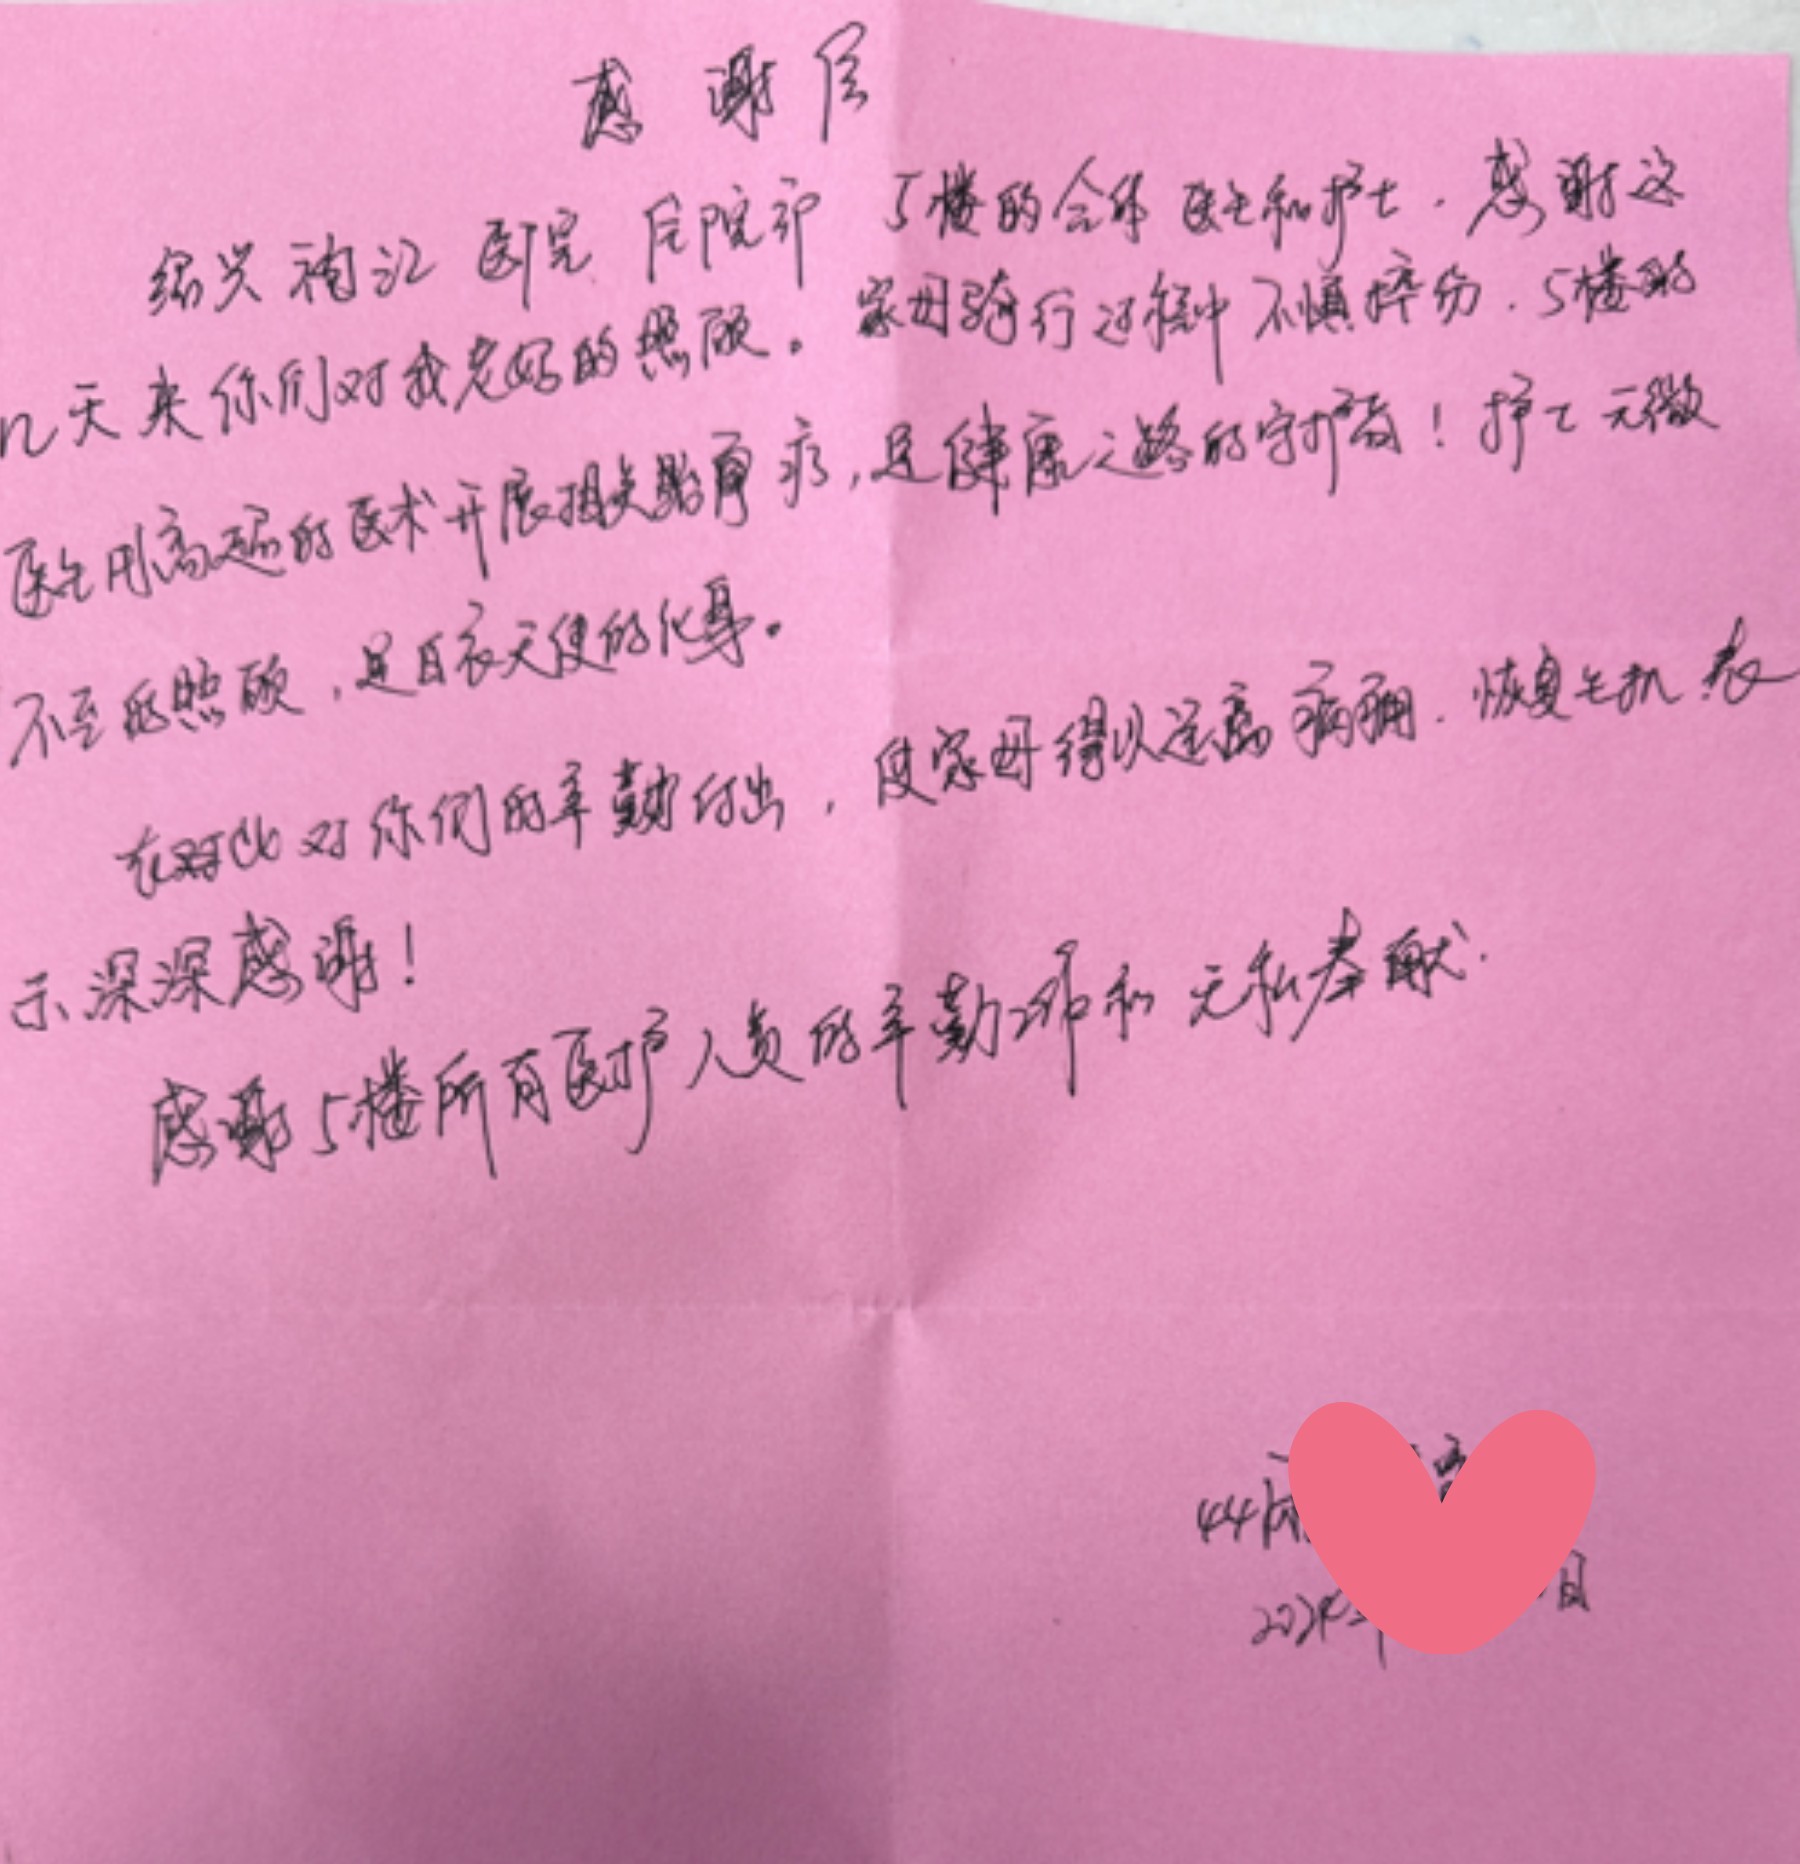 感谢信
绍兴袍江医院住院部5楼的全体医生和护士.感谢这
几天来你们对我老妈的照顾。家母骑行过程中不慎摔伤.5楼的
医生用高超的医术开展相关治疗,是健康之路的守护者!护士无微
不至的照顾,是白衣天使的化身。
在对此对你们的辛勤付出,使家母得以远离病痛.恢复生机.表
示深深感谢!
感谢5楼所有医护人员的辛勤工作和无私奉献.
44
2024年 日